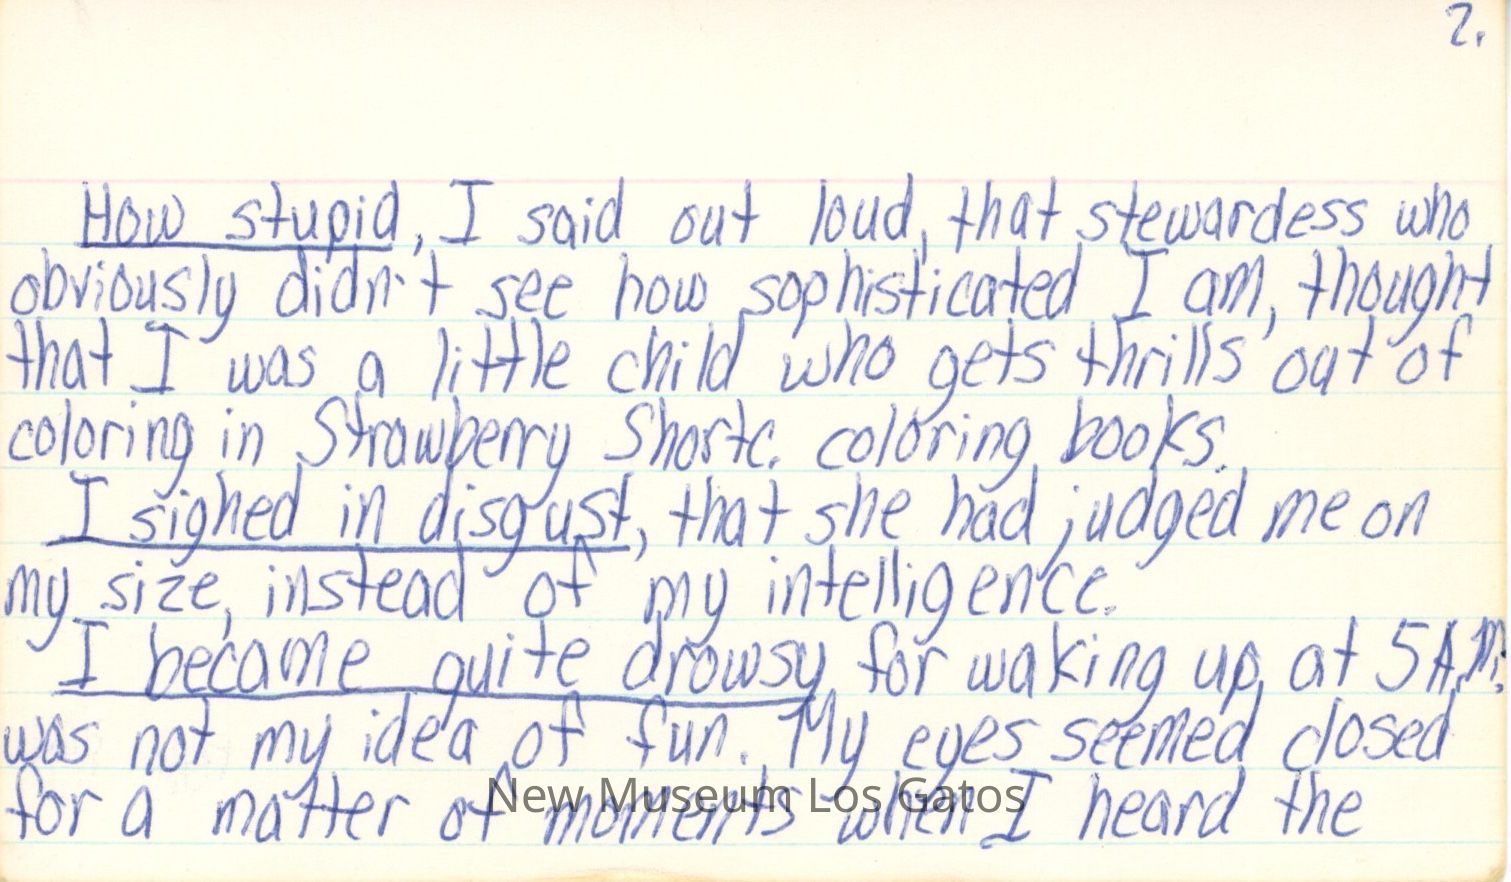 2.
How stupid, I said out loud, that stewardess who
obviously didn't see how sophisticated I am, thought
that I was a little child who gets thrills out of
coloring in Strawberry Shortc. coloring books.
I sighed in disgust, that she had judged me on
my size, instead of my intelligence.
I became quite drowsy for waking up at 5 A.M.
was not my idea of fun. My eyes seemed closed
for a matter of moments when I heard the
New Museum Los Gatos